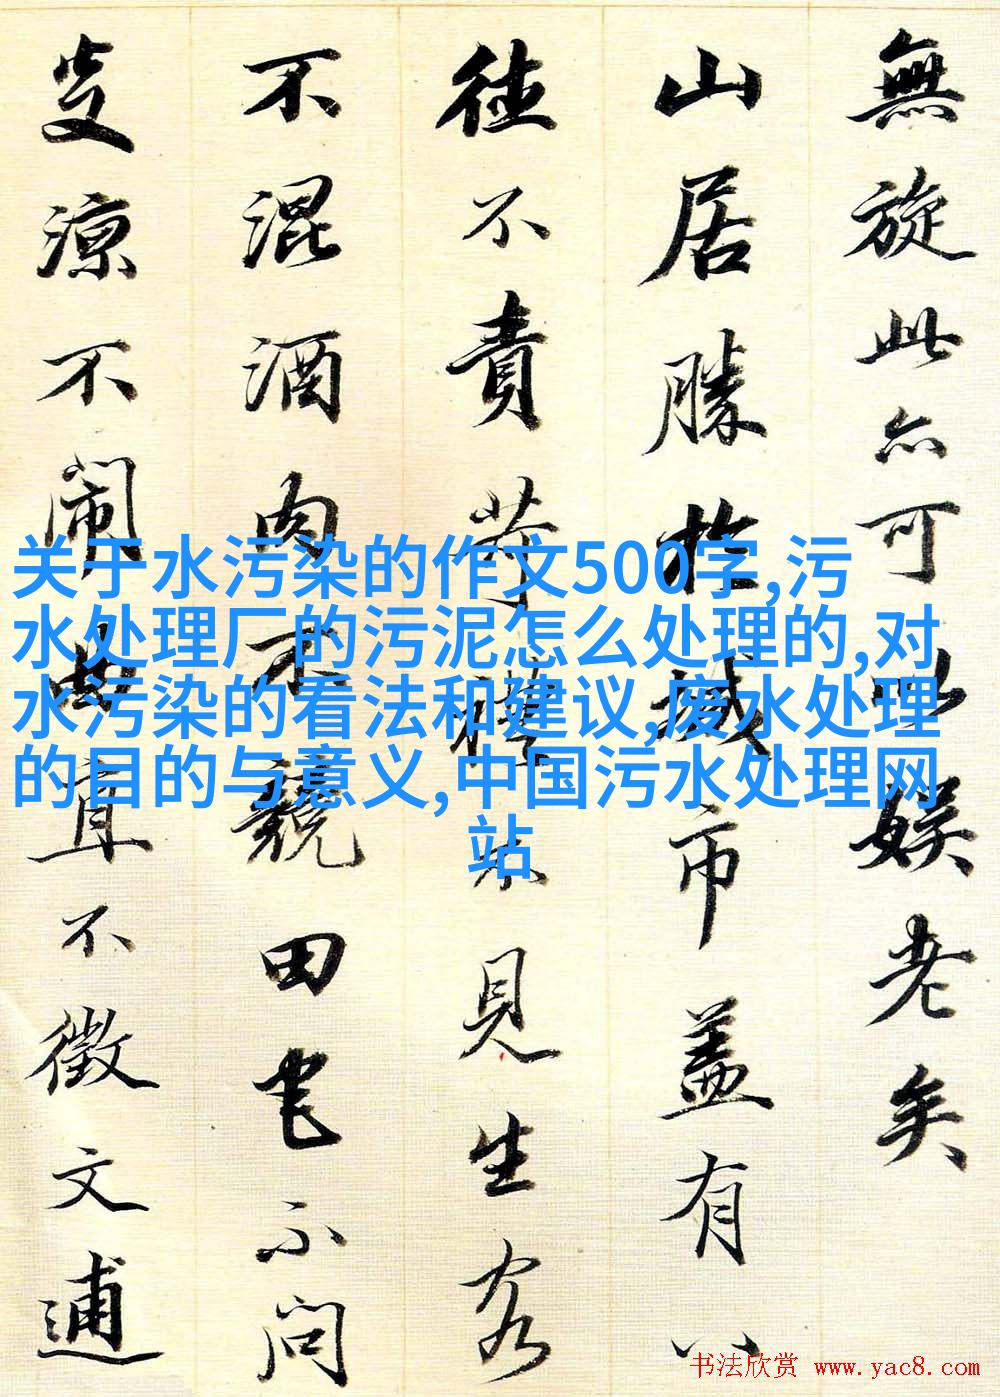 無旋此亦可以娱老矣
山居勝於城市蓋有八
徳不責苛禮不見生客
不混酒肉不競田宅不問
炎涼不鬧曲直不徵文逋
关于水污染的作文500字,污
水处理厂的污泥怎么处理的,对
水污染的看法和建议,废水处理
的目的与意义,中国污水处理网
站
书法欣赏 www.yac8.com